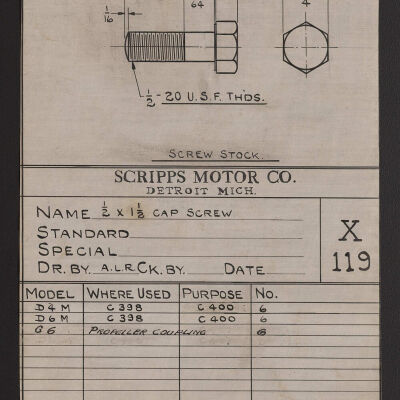 64
4
1/16
1/2 - 20 U.S.F. THDS.
SCREW STOCK.
SCRIPPS MOTOR CO.
DETROIT MICH.
NAME 1/2 X 1 1/2 CAP SCREW
STANDARD
SPECIAL
DR. BY. A.L.R. CK. BY. DATE
X
119
MODEL WHERE USED PURPOSE NO.
D4M C398 C400 6
D6M C398 C400 6
G6 PROPELLER COUPLING 6